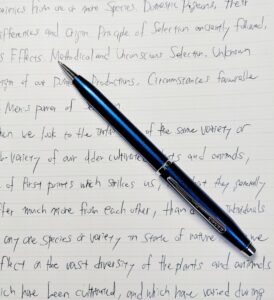 varieties from one or more Species. Domestic Pigeons, their
differences and origin. Principle of Selection anciently followed,
its Effects. Methodical and Unconscious Selection. Unknown
origin of our Domestic Productions. Circumstances favourable
Man's power of
When we look to the individuals of the same variety or
sub-variety of our older cultivated plants and animals,
of first points which strikes us, is that they generally
differ much more from each other, than individuals
any one species or variety in state of nature
reflect on the vast diversity of the plants and animals
which have been cultivated, and which have varied during